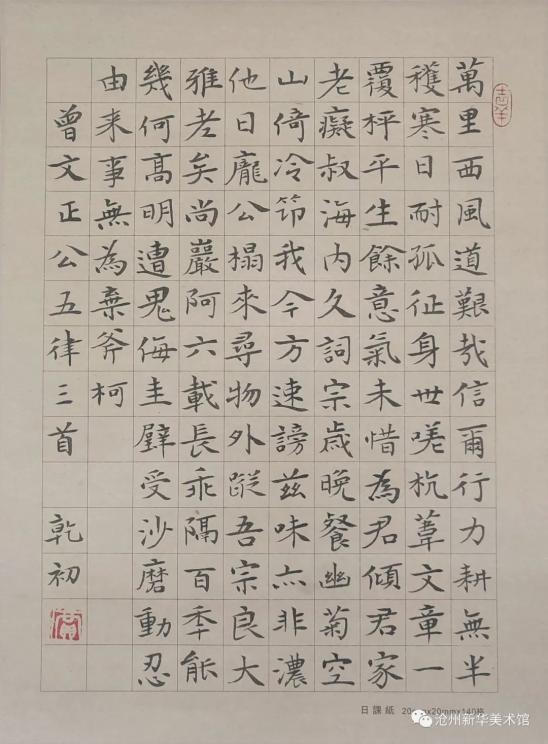 萬里西風道艱哉信爾行力耕無半
穫寒日耐孤征身世嗟杭葦文章一
覆枰平生餘意氣未惜為君傾君家
老癡叔海内久詞宗歳晚餐幽菊空
山倚冷筇我今方速謗茲味亦非濃
他日龐公榻來尋物外蹤吾宗良大
雅老矣尚巖阿六載長乖隔百季能
幾何髙明遭鬼侮圭璧受沙磨動忍
由来事無為棄斧柯
曾文正公五律三首 乾初
日課紙 20mmx20mmx140格
沧州新华美术馆